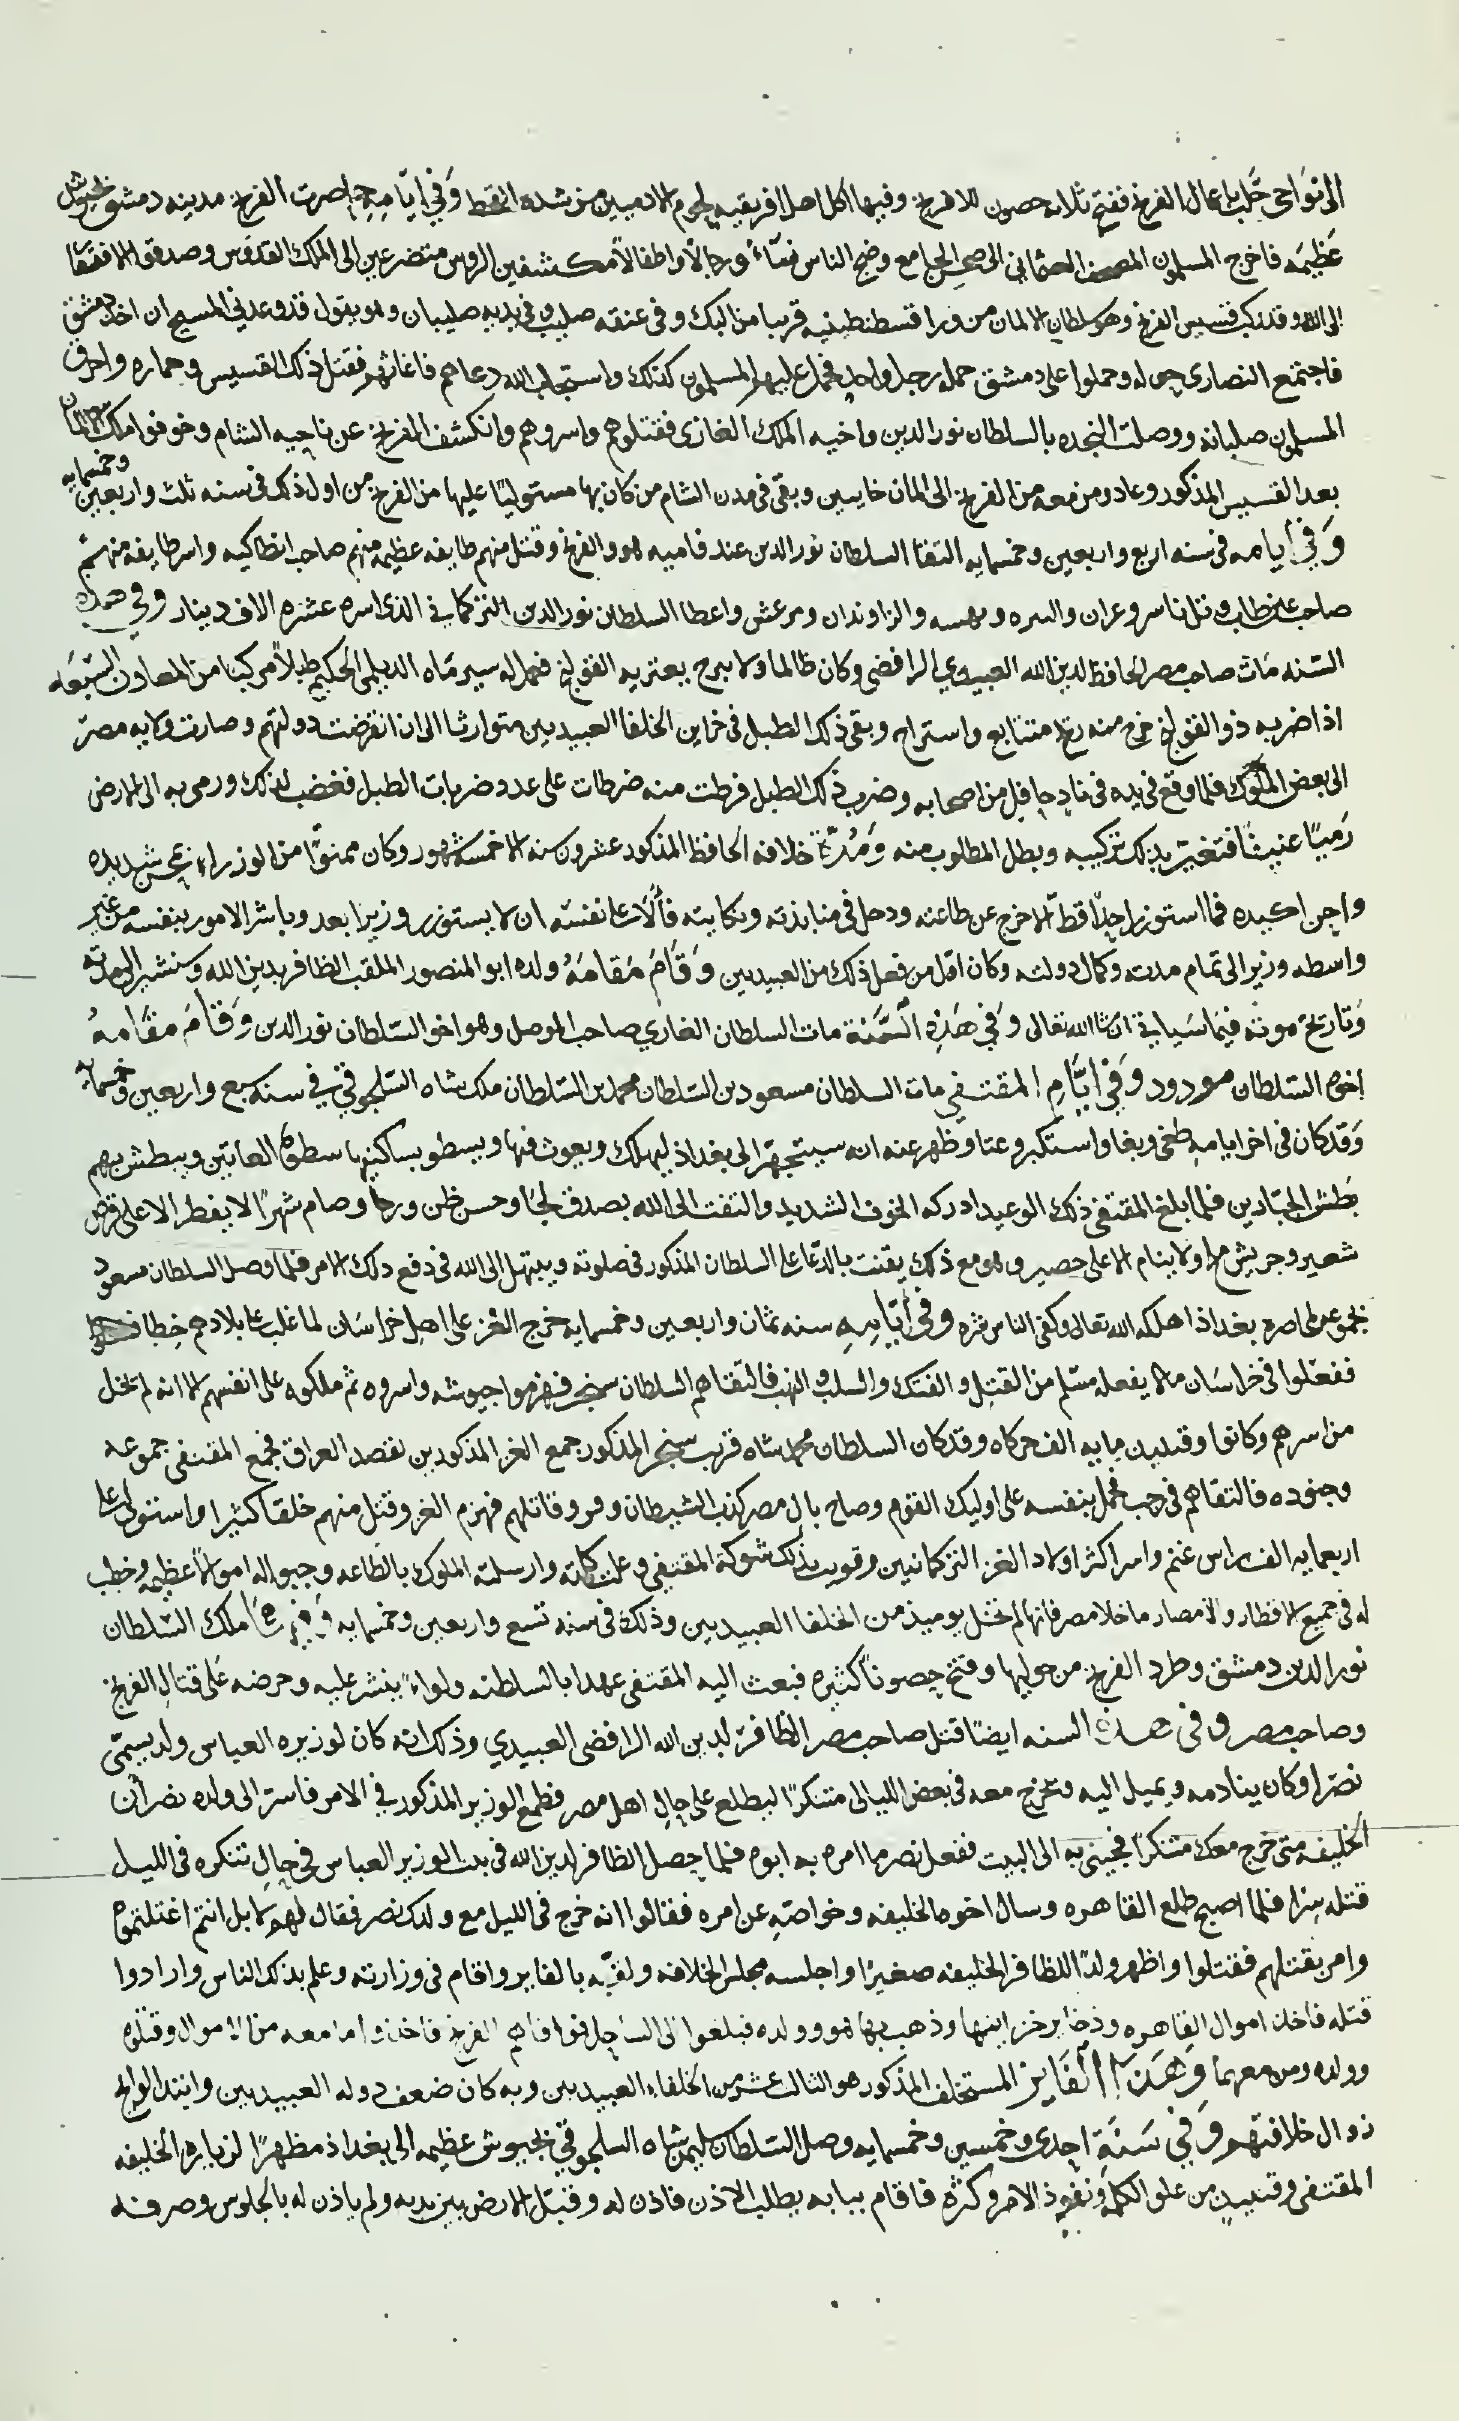 الى نواحي حلب باعمال الفرنج ففتح ثلاثه حصون للافرنج وفيها اكل اهل افريقيه لحوم الادميين من شده القحط وَفي ايّامِهِ حاصرت الفرنج مدينه دمشق بجيوش
عَظِيمَه فاخرج المسلمون المصحف العثماني الى صحن الجامع وضج الناس نسَاءً ورجالاً واطفالاً مكشفين الروس متضرعين الى الملك القدّوس وصدقوا الافتقار
الى الله وقد ركب قسيس الفرنج وهو سلطان الالمان من ورا قسطنطينيه قريبا من البك وفي عنقه صليب وفي يديه صليبان وهو يقول قد وعدني المسيح ان اخذ دمشق
فاجتمع النصارى حوله وحملوا على دمشق حمله رجل واحد فحمل عليهم المسلمون كذلك واستجاب الله دعاهم فاغاثهم فقتل ذلك القسيس وحماره واحرق
المسلمون صلبانه ووصلت النجده بالسلطان نور الدين واخيه الملك الغازي فقتلوهم واسروهم وانكشف الفرنج عن ناحيه الشام وخوفوا ملك الالمان
بعد القسيس المذكور وعاد ومن معه من الفرنج الى المان خايبين وبقى في مدن الشام من كان بها مستوليًا عليها من الفرنج من اول ذلك في سنه ثلث واربعين وخمسمايه
وَفي ايامه في سنه اربع واربعين وخمسمايه التقا السلطان نور الدين عند فاميه هو والفرنج وقتل منهم طايفه عظيمه منهم صاحب انطاكيه واسر طايفه منهم
صاحب عينطاب وتل ناسر وعزان والبيره وبهسنه والراوندان ومرعش واعطا السلطان نور الدين التركماني الذي اسره عشره الاف دينار وفي هذه
السّنه مَات صاحب مصر الحافظ لدين الله العبيدي الرافضي وكان ظالما ولا يبرح يعتريه القولنج فعمل له سيرمَاه الديلمي الحكيم طبلاً مركبا من المعادن السّبعَه
اذا ضربه ذو القولنج خرج منه ريح متتابع واستراح وبقى ذلك الطبل في خزاين الخلفا العبيديين متوارثا الى ان انقرضت دولتهم وصارت ولايه مصرَ
الى بعض الملوك فلما وقع في يده في نادٍ حافل من اصحابه وضرب ذلك الطبل فرطت منه ضرطات على عدد ضربات الطبل فغضب لذلك ورمى به الى الارض
رَميًا عنيفًا فتغيّر بذلك تركيبه وبطل المطلوب منه وَمُدّة خلافه الحافظ المذكور عشرون سنه الا خمسة شهور وكان ممنوًّا من الوزراء بمحن شديده
واحن اكيده فما استوزر احدًا قطّ الا خرج عن طاعته ودخل في منابذته ونكايته فالا على نفسّه ان لا يستوزر وزيرا بعد وباشر الامور بنفسه من غير
واسطه وزير الى تمام مدته وكمال دولته وكان اقل من فعل ذلك من العبيديين وَقَامَ مَقامَهُ ولده ابو المنصور الملقب الظافر بدين الله وسنشير الى مدته
وَتاريخ موته فيما سَياتي ان شا الله تعالى وَفي هَذِهِ السَّنة مات السلطان الغازي صاحب الموصل وهو اخو السّلطان نور الدين وَقامَ مقَامهُ
اخوه السّلطان مودود وَفي ايَّامِ المقتفي مات السلطان مسعود بن السّلطان محمد بن السّلطان ملك شاه السّلجوقي في سنه سبع واربعين وخمسمايه
وَقد كان في اخر ايامه طغى وبغا واستكبر وعتا وظهر عنه انه سيتجهّز الى بغداذ ليهلك ويعوث فيها ويسطو بساكنيها سطوة العاتين ويبطش بهم
بَطش الجبّادين فلما بلغ المقتفي ذلك الوعيد ادركه الخوف الشديد والتفت الى الله بصدق لجَا وحسن ظن ورجا وصام شهرًا لا يفطر الا على قرص
شعير وجريش ملح ولا ينام الا على حصير وهو مع ذلك يقنت بالدّعا على السلطان المذكور في صلوته ويبتهل الى الله في دفع ذلك الامر فلما وصل السلطان مسعود
بجموعه لمحاصرة بغداذ اهلكه الله تعالى وكفى الناس شره وفي أيّامِهِ سنه ثمان واربعين وخمسمايه خرج الغز على اهل خراسَان لما غلب على بلادهم خطا
ففعَلوا في خراسَان ما لا يفعله مسّلم من القتل و الفتك والسلب والنهب فالتقاهم السلطان سنجر فهزموا جيوشه واسروه ثم ملكوه على انفسهم الا انه لم يخل
من اسرهم وكانوا وقتيذ مايه الف خركاه وقد كان السلطان محمد شاه قريب سنجر المذكور جمع الغز المذكورين لقصد العراق فجمع المقتفي جموعه
وجنوده فالتقاهم في رجب فحمل بنفسه على اوليك القوم وصاح بال مصر كذب الشيطان وفر وقاتلهم فهزم الغز وقتل منهم خلقا كثيرا واستولى على
اربعمايه الف راس غنم واسر اكثر اولاد الغز التركمانيين وقويت بذلك شوكة المقتفي وعلت كلمته وارسلته الملوك بالطاعه وجبوا له اموالاً عظيمه وخطب
له في جميع الاقطار والامصار ما خلا مصر فانها لم تخل يوميذ من الخلفا العبيديين وذلك في سنه تسع واربعين وخمسمايه وَفيها ملك السّلطان
نور الدين دمشق وطرد الفرنج من حوليها وفتح حصونًا كثيره فبعث اليه المقتفي عهدا بالسلطنه ولواءً ينشر عليه وحرضه عَلى قتال الفرنج
وصاحب مصر وفي هذه السنه ايضًا قتل صاحب مصر الظافر لدين الله الرافضي العبيدي وذلك انه كان لوزيره العباس ولد يسمّى
نصرًا وكان ينادمه ويميل اليه ويخرج معه في بعض الليالي متنكرًا ليطلع على حال اهل مصر فطمع الوزير المذكور في الامر فاسرّ الى ولده نصر أن
الخليفه متى خرج معك متنكرًا فجيئي به الى البيت ففعل نصر ما امره به ابوه فلما حصل الظافر لدين الله في بيت الوزير العباس في حال تنكره في الليل
قتله سِرًا فلما اصبح طلع القاهره وسال اخوه الخليفه وخواصّهِ عن امره فقالوا انه خرج في الليل مع ولدك نصر فقال لهم لا بل انتم اغتلتموه
وامر بقتلهم فقتلوا واظهر ولدًا للظافر الخليفه صغيرًا واجلسه مجلس الخلافه ولقبّه بالفايز واقام في وزارته وعلم بذلك الناس وارادوا
قتله فاخذ اموال القاهره وذخاير خزاينها وذهب بها هو وولده فبلغوا الى الساحل فوافاهم الفرنج فاخذوا ما معه من الاموال وقتلوه
وولده ومن معهما وَهَذا الفَايز المستخلف المذكور هو الثالث عشر من الخلفاء العبيديين وبه كان ضعف دوله العبيديين وابتدا لوايح
زوال خلافتهم وَفي سَنَةِ احدى وخمسين وخمسمايه وصل السّلطان سليمن شاه السلجوقي بجيوش عظيمه الى بغداذ مظهرًا لزيارة الخليفه
المقتفي وقتيذ من علو الكلمَه ونفوذ الامر وكثرة فاقام ببابه يطلب الاذن فاذن له وقبّل الارض بين يديه ولم ياذن له بالجلوس وصرفه